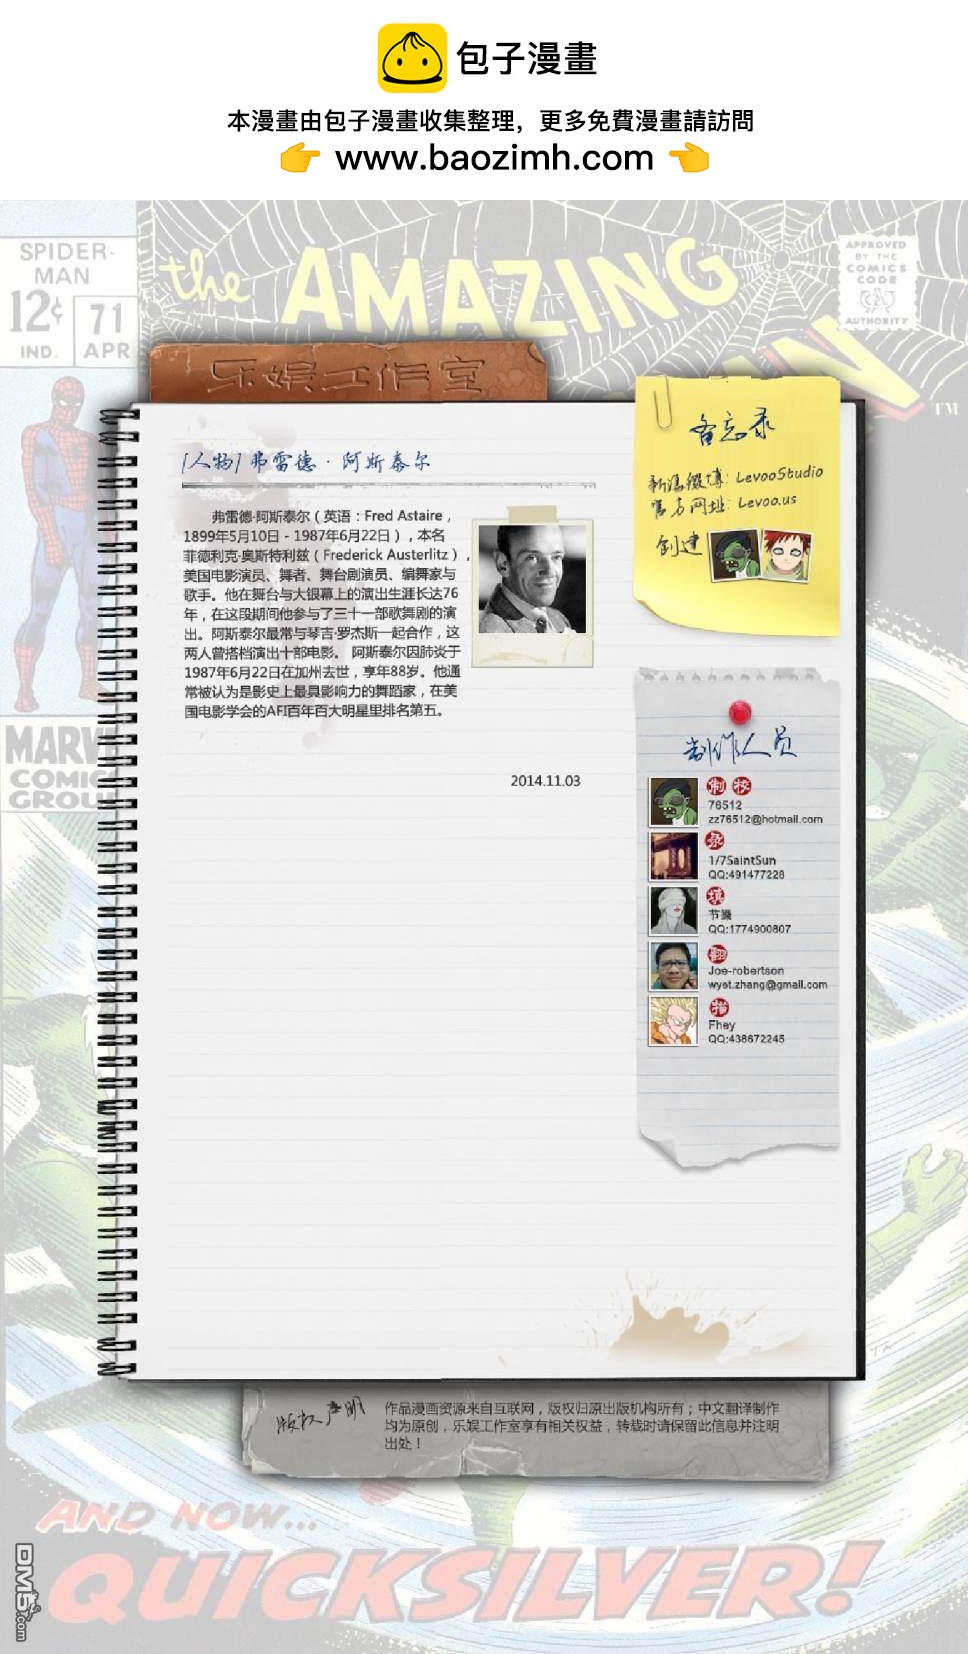 包子漫畫
本漫畫由包子漫畫收集整理，更多免費漫畫請訪問
www.baozimh.com
SPIDER-
MAN
12¢
71
IND.
APR
the AMAZING
APPROVED
BY THE
COMICS
CODE
CA
AUTHORITY
TM
乐娱工作室
[人物] 弗雷德·阿斯泰尔
弗雷德·阿斯泰尔（英语：Fred Astaire，
1899年5月10日 - 1987年6月22日），本名
菲德利克·奥斯特利兹（Frederick Austerlitz），
美国电影演员、舞者、舞台剧演员、编舞家与
歌手。他在舞台与大银幕上的演出生涯长达76
年，在这段期间他参与了三十一部歌舞剧的演
出。阿斯泰尔最常与琴吉·罗杰斯一起合作，这
两人曾搭档演出十部电影。 阿斯泰尔因肺炎于
1987年6月22日在加州去世，享年88岁。他通
常被认为是影史上最具影响力的舞蹈家，在美
国电影学会的AFI百年百大明星里排名第五。
2014.11.03
备忘录
新浪微博: LevooStudio
官方网址: Levoo.us
创建
制作人员
制 校
76512
zz76512@hotmail.com
录
1/7SaintSun
QQ:491477228
填
节操
QQ:1774900807
翻
Joe-robertson
wyet.zhang@gmail.com
描
Fhey
QQ:438672245
MARV
COMIC
GROU
版权声明
作品漫画资源来自互联网，版权归原出版机构所有；中文翻译制作
均为原创，乐娱工作室享有相关权益，转载时请保留此信息并注明
出处！
AND NOW...
QUICKSILVER!
DM5.com